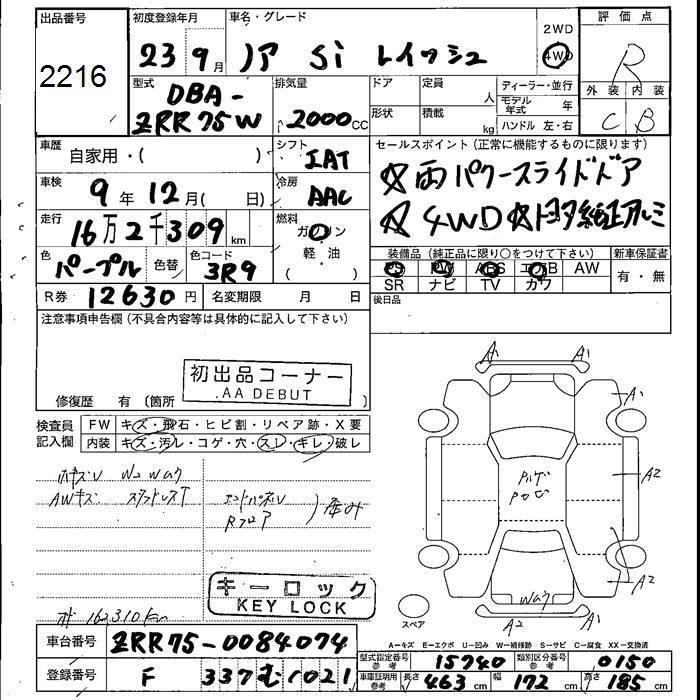 出品番号
2216
初度登録年月
23 9月
車名・グレード
ノア Si レイッシュ
2WD
4WD
評価点
R
外装 内装
C B
型式
DBA-
ZRR75W
排気量
2000cc
ドア
形状
定員
人
積載
kg
ディーラー・並行
モデル年式 年
ハンドル 左・右
車歴
自家用・( )
シフト
IAT
セールスポイント(正常に機能するものに限ります)
☆両パワースライドドア
☆4WD ☆トヨタ純正アルミ
車検
9年12月( 日)
冷房
AAC
走行
16万2千309km
燃料
ガソリン
軽・油
( )
色
パープル
色替
色コード
3R9
装備品(純正品に限り○をつけて下さい)
PS PW ABS エアB AW
SR ナビ TV カワ
新車保証書
有・無
R券 12630円
名変期限 月 日
後日品
注意事項申告欄(不具合内容等は具体的に記入して下さい)
初出品コーナー
AA DEBUT
修復歴 有(箇所 )
検査員
記入欄
FW キズ・飛石・ヒビ割・リペア跡・X要
内装 キズ・汚レ・コゲ・穴・スレ・キレ・破レ
AWキズ
エンドパネル
Rフロア
キーロック
KEY LOCK
162310km
A1
A1
A1
A2
A2
A1
A2
スペア
A-キズ E-エクボ U-凹み W-補修跡 S-サビ C-腐食 XX-交換済
車台番号
ZRR75-0084074
登録番号
F 337む1021
型式指定番号
参考
15740
類別区分番号
参考
0150
車庫証明用
参考
長さ 463cm
幅 172cm
高さ 185cm